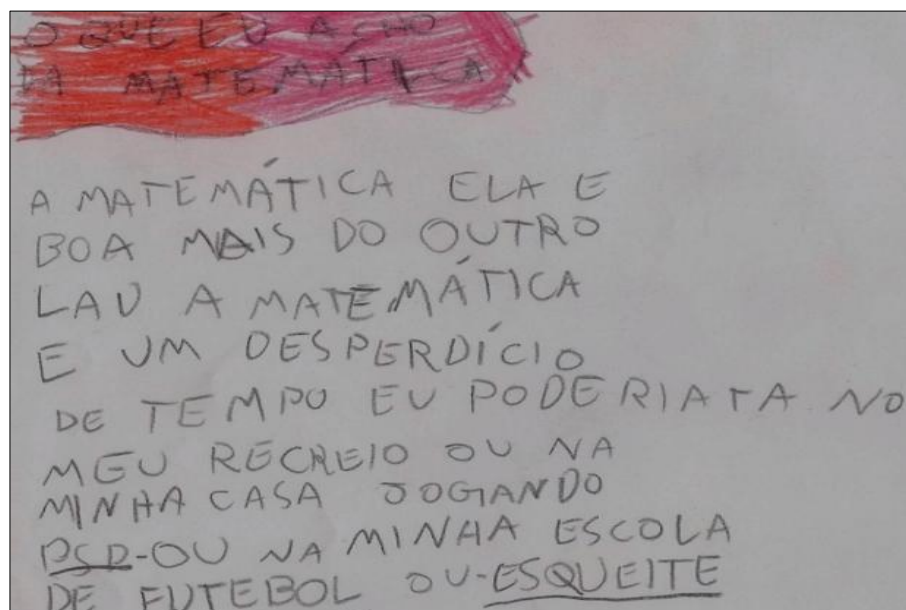 O QUE EU ACHO
DA MATEMÁTICA
A MATEMÁTICA ELA E
BOA MAIS DO OUTRO
LAU A MATEMÁTICA
E UM DESPERDÍCIO
DE TEMPO EU PODERIATA NO
MEU RECREIO OU NA
MINHA CASA JOGANDO
PSP-OU NA MINHA ESCOLA
DE FUTEBOL OU-ESQUEITE